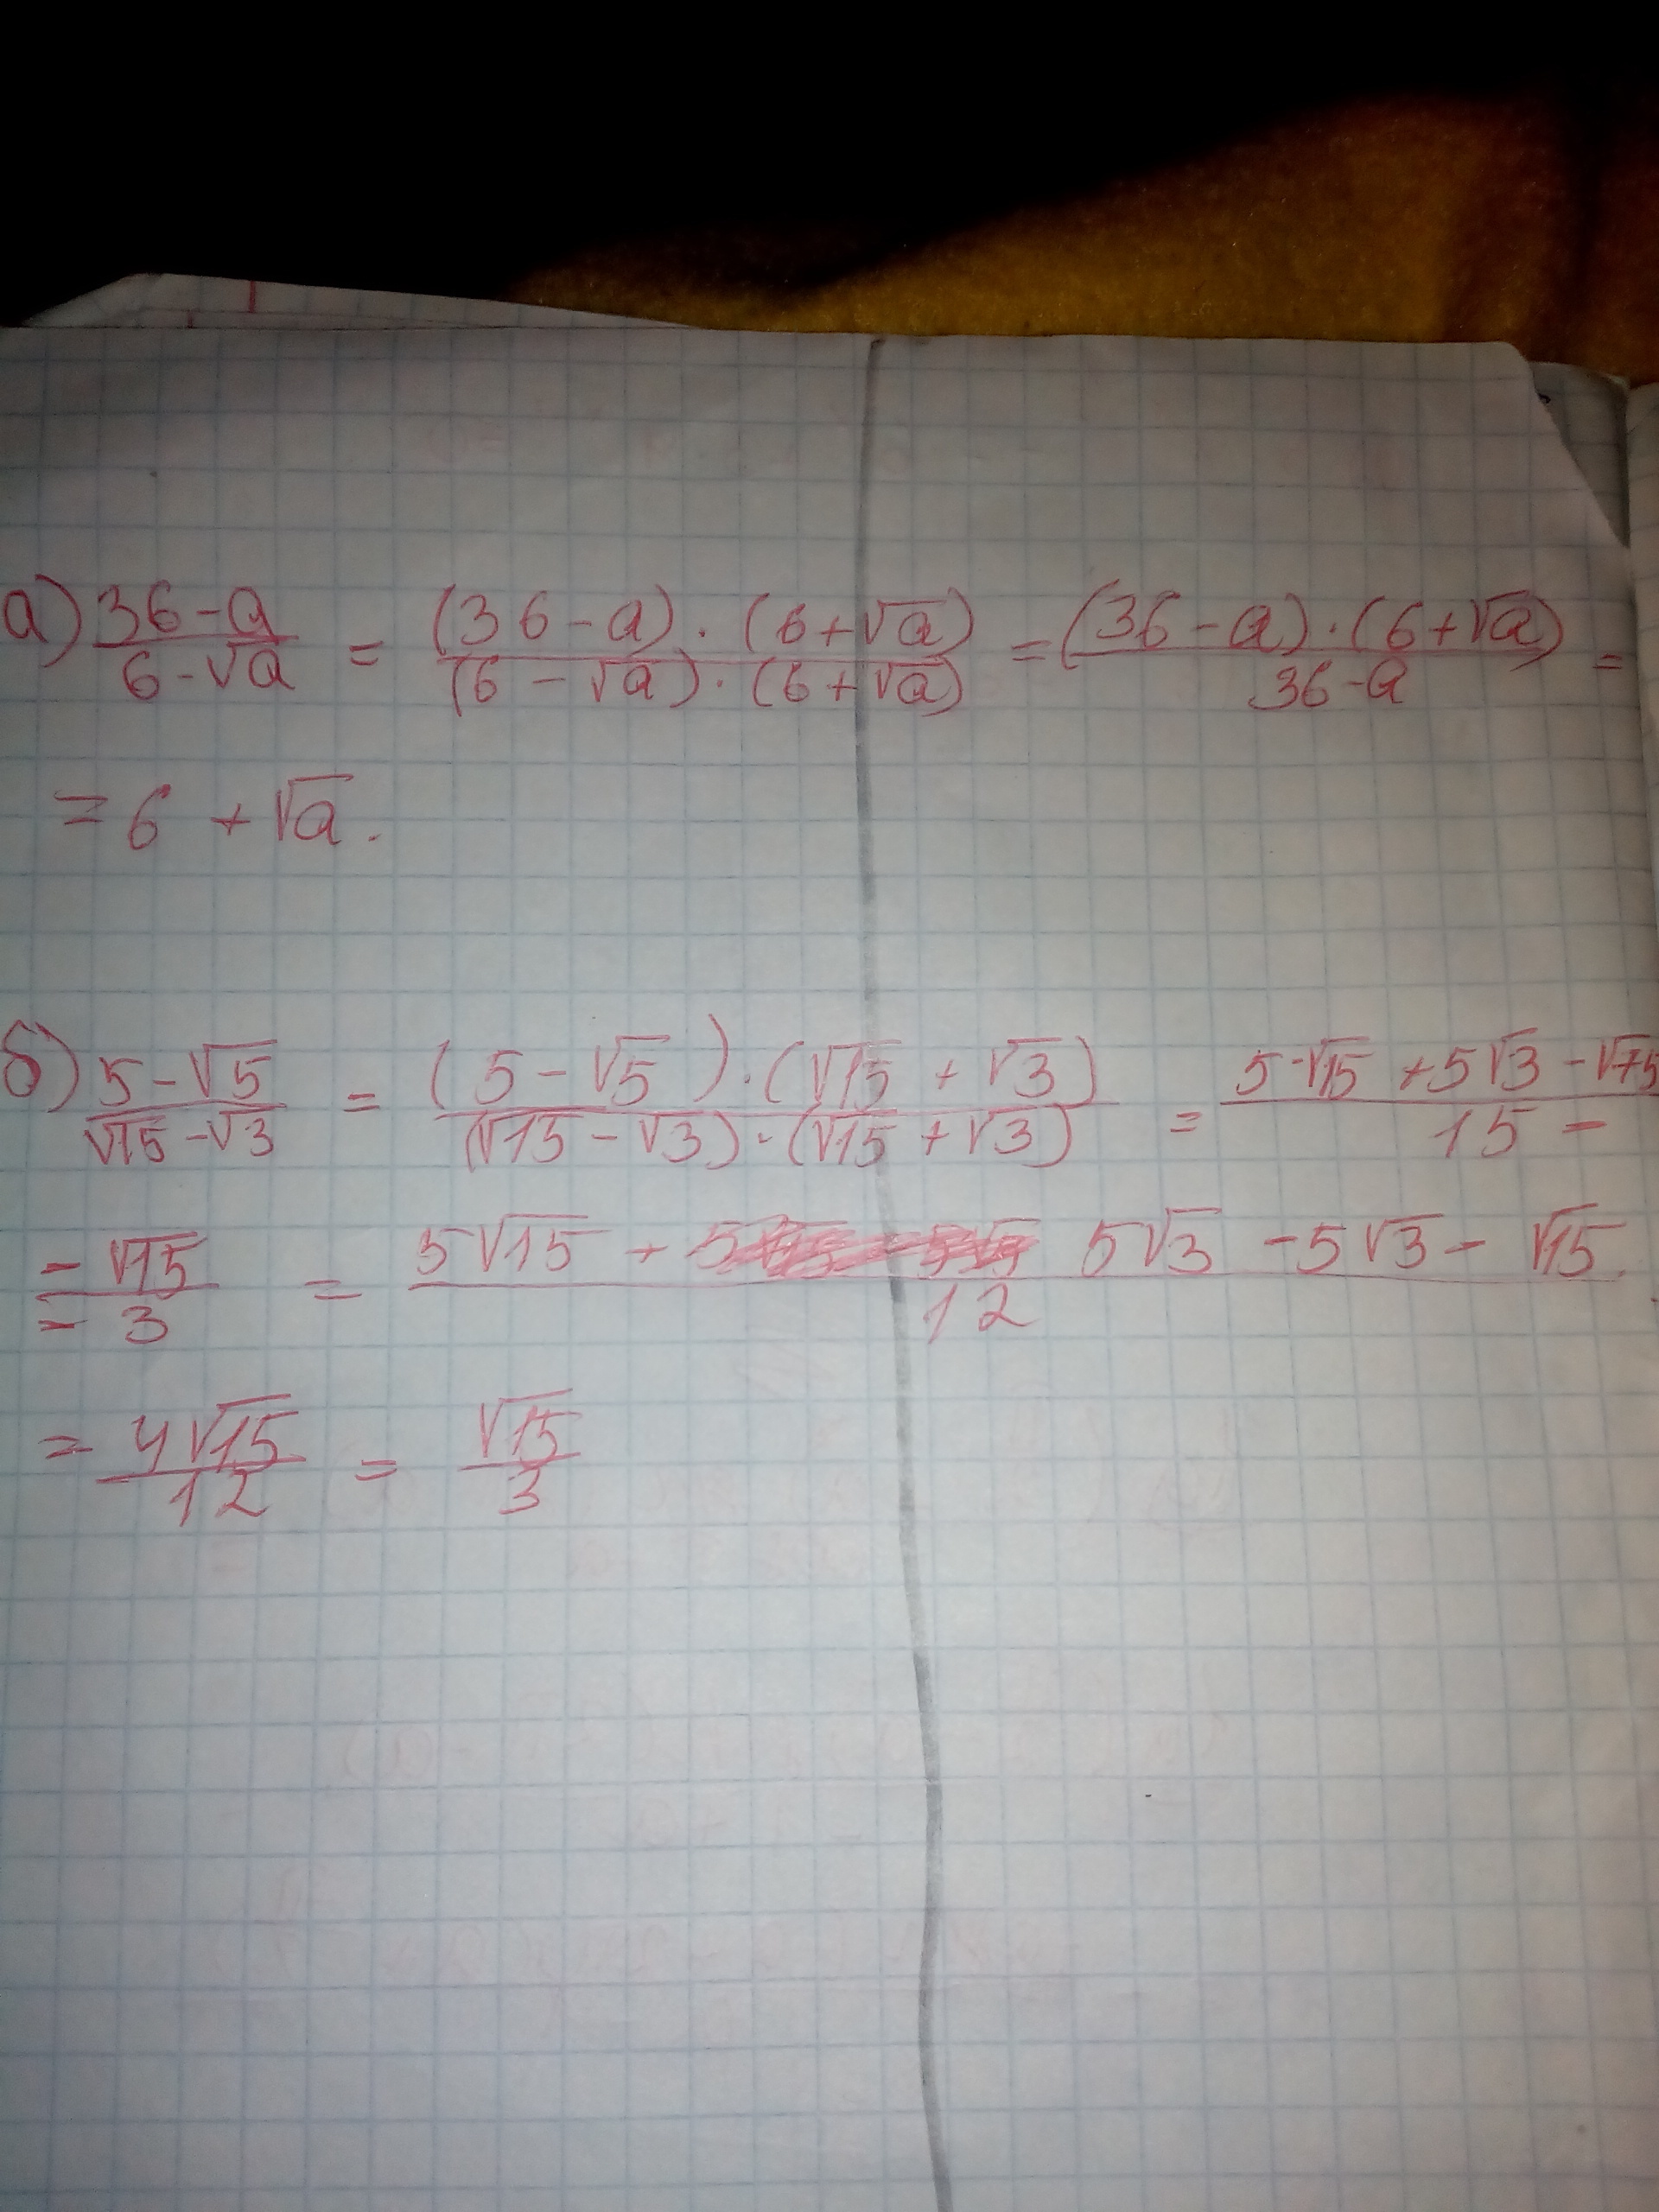 а) (36-a)/(6-√a) = ((36-a)·(6+√a))/((6-√a)·(6+√a)) = ((36-a)·(6+√a))/(36-a) =
= 6 + √a.
б) (5-√5)/(√15-√3) = ((5-√5)·(√15+√3))/((√15-√3)·(√15+√3)) = (5·√15+5√3-√75)/(15-
(-√15)/(-3) = (5√15 + 5√3 - 5√3 - √15)/12
= 4√15/12 = √15/3